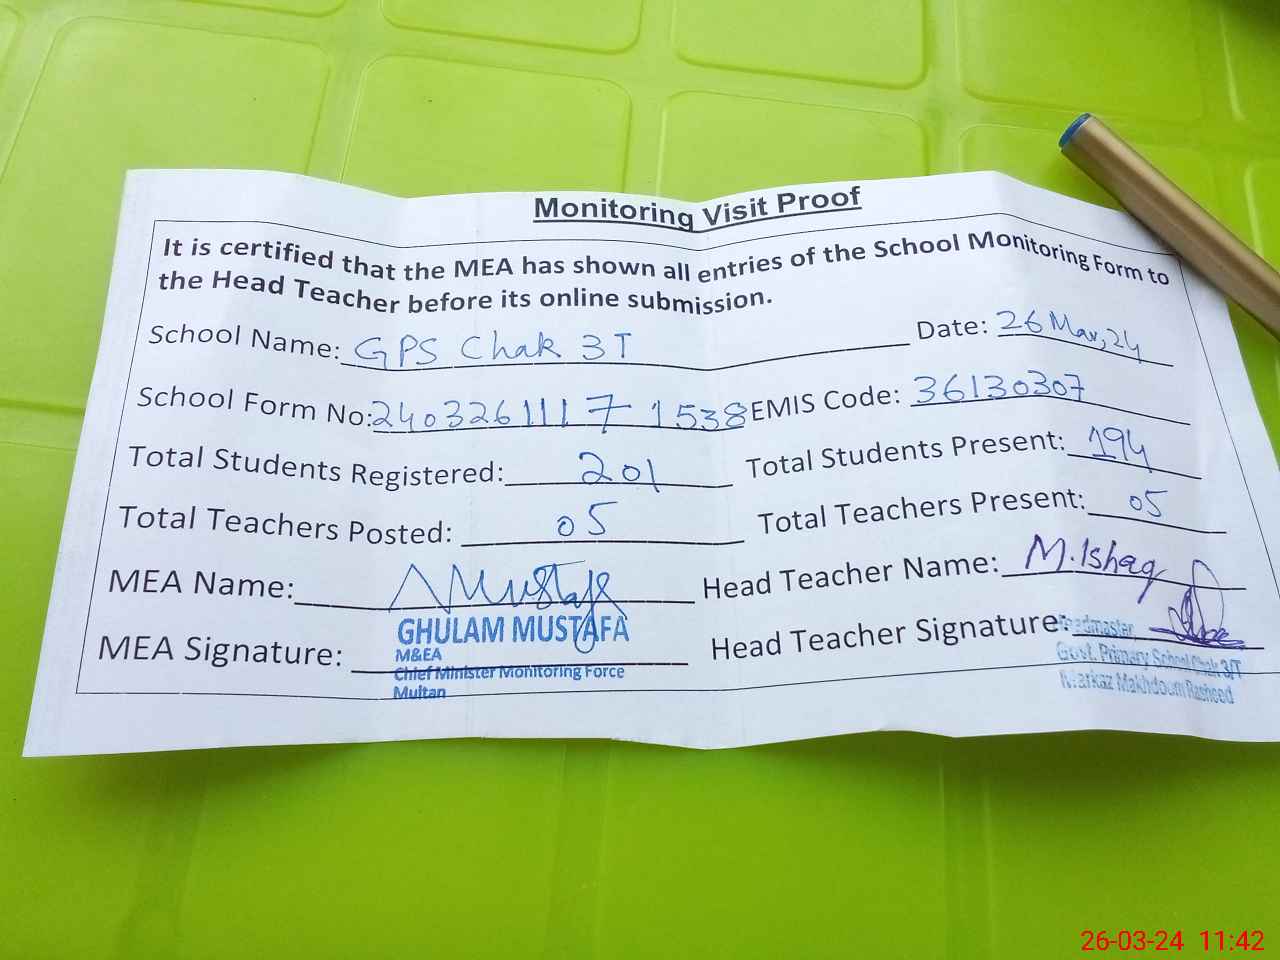 Monitoring Visit Proof
It is certified that the MEA has shown all entries of the School Monitoring Form to
the Head Teacher before its online submission.
School Name: GPS Chak 3T Date: 26 Mar, 24
School Form No: 24032611171538 EMIS Code: 36130307
Total Students Registered: 201 Total Students Present: 194
Total Teachers Posted: 05 Total Teachers Present: 05
MEA Name: Mustafa Head Teacher Name: M. Ishaq
GHULAM MUSTAFA
MEA Signature: Head Teacher Signature:
M&EA
Chief Minister Monitoring Force
Multan
Headmaster
Govt. Primary School Chak 3/T
Markaz Makhdoom Rasheed
26-03-24 11:42